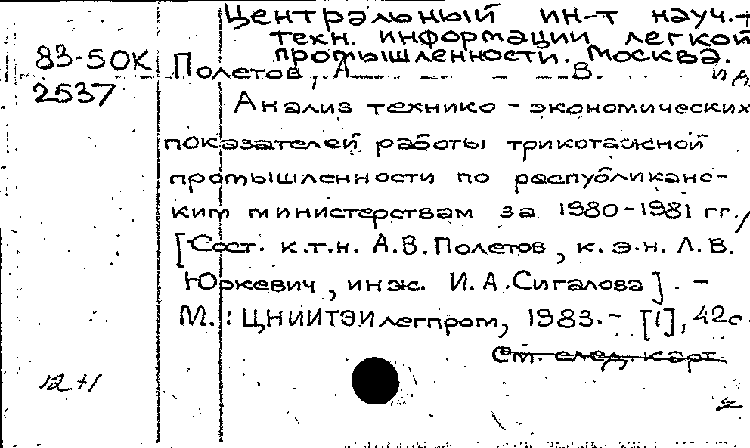 Центральный ин-т науч.-
техн. информации легкой
промышленности. Москва.
83-5ОК
Полетов, А. В. и др.
2537
Анализ технико-экономических
показателей работы трикотажной
промышленности по республиканс-
ким министерствам за 1980-1981 гг./
[Сост. к.т.н. А.В. Полетов, к.э.н. Л.В.
Юркевич, инж. И.А. Сигалова]. -
М.: ЦНИИТЭИлегпром, 1983. - [1], 42с.
См. след. карт.
12+1